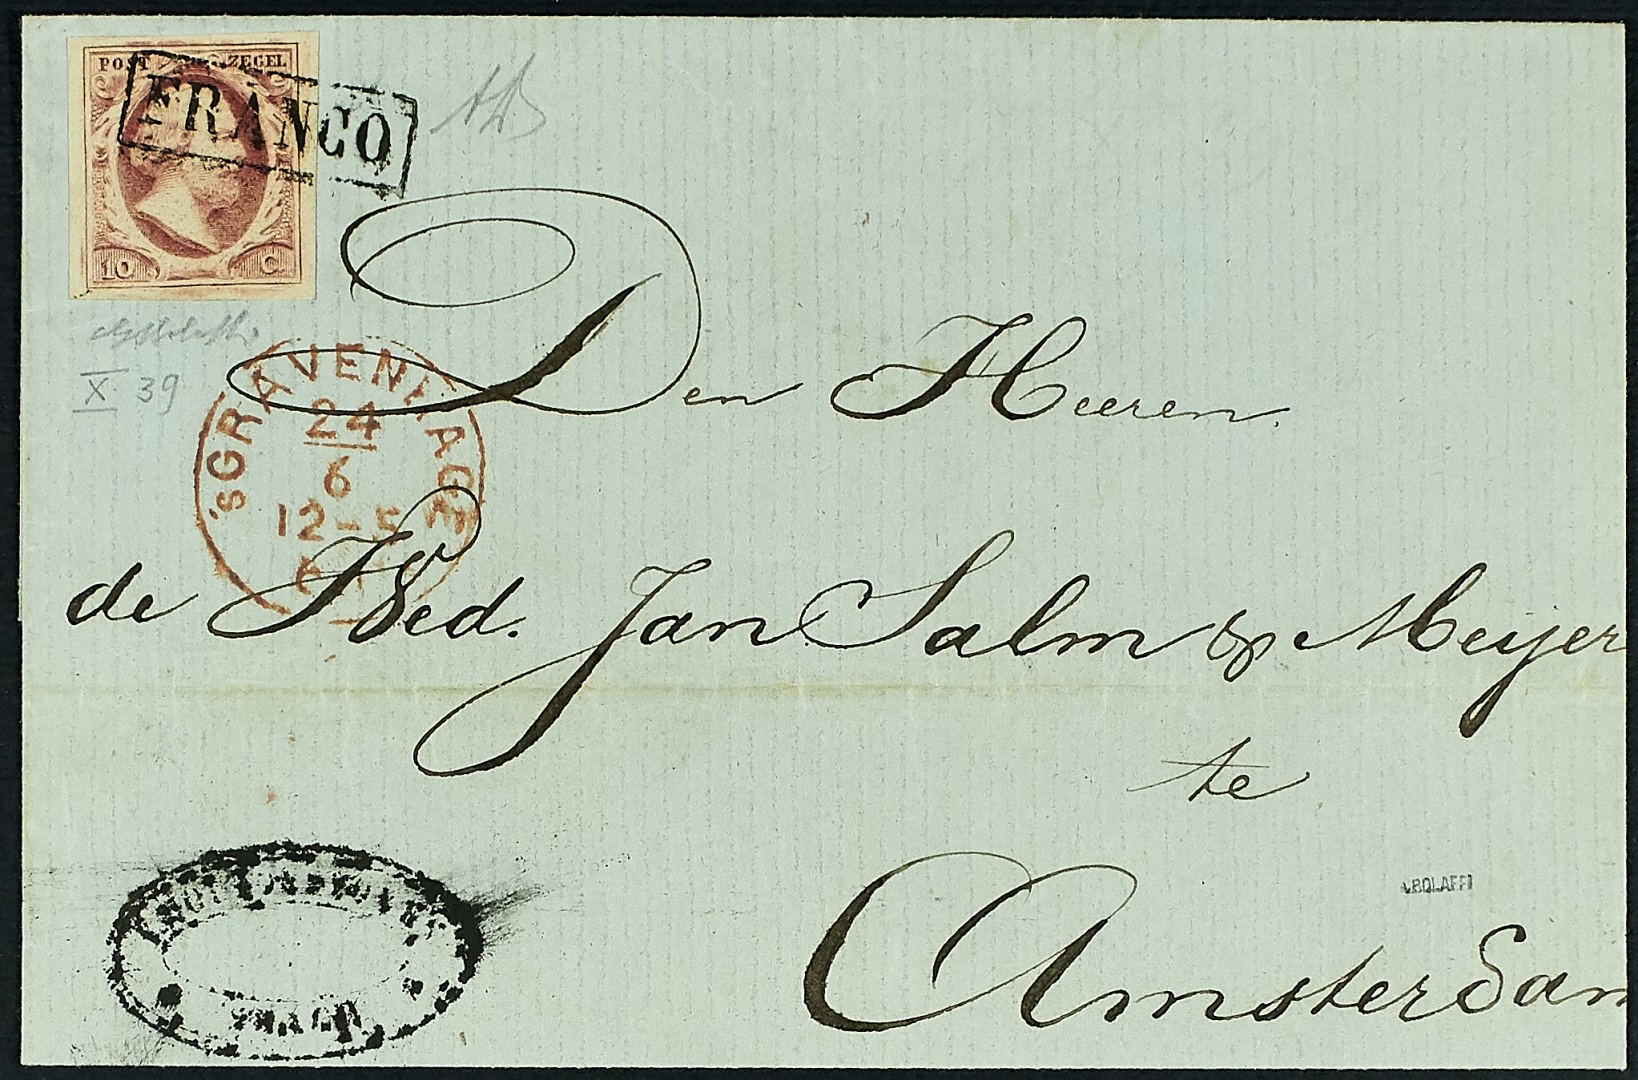 POST ZEGEL
FRANCO
10 C
X. 39
'sGRAVENHAGE
24
6
12-5
Den Heeren
de Wed. Jan Salm & Meijer
te
Amsterdam
A.BOLAFFI